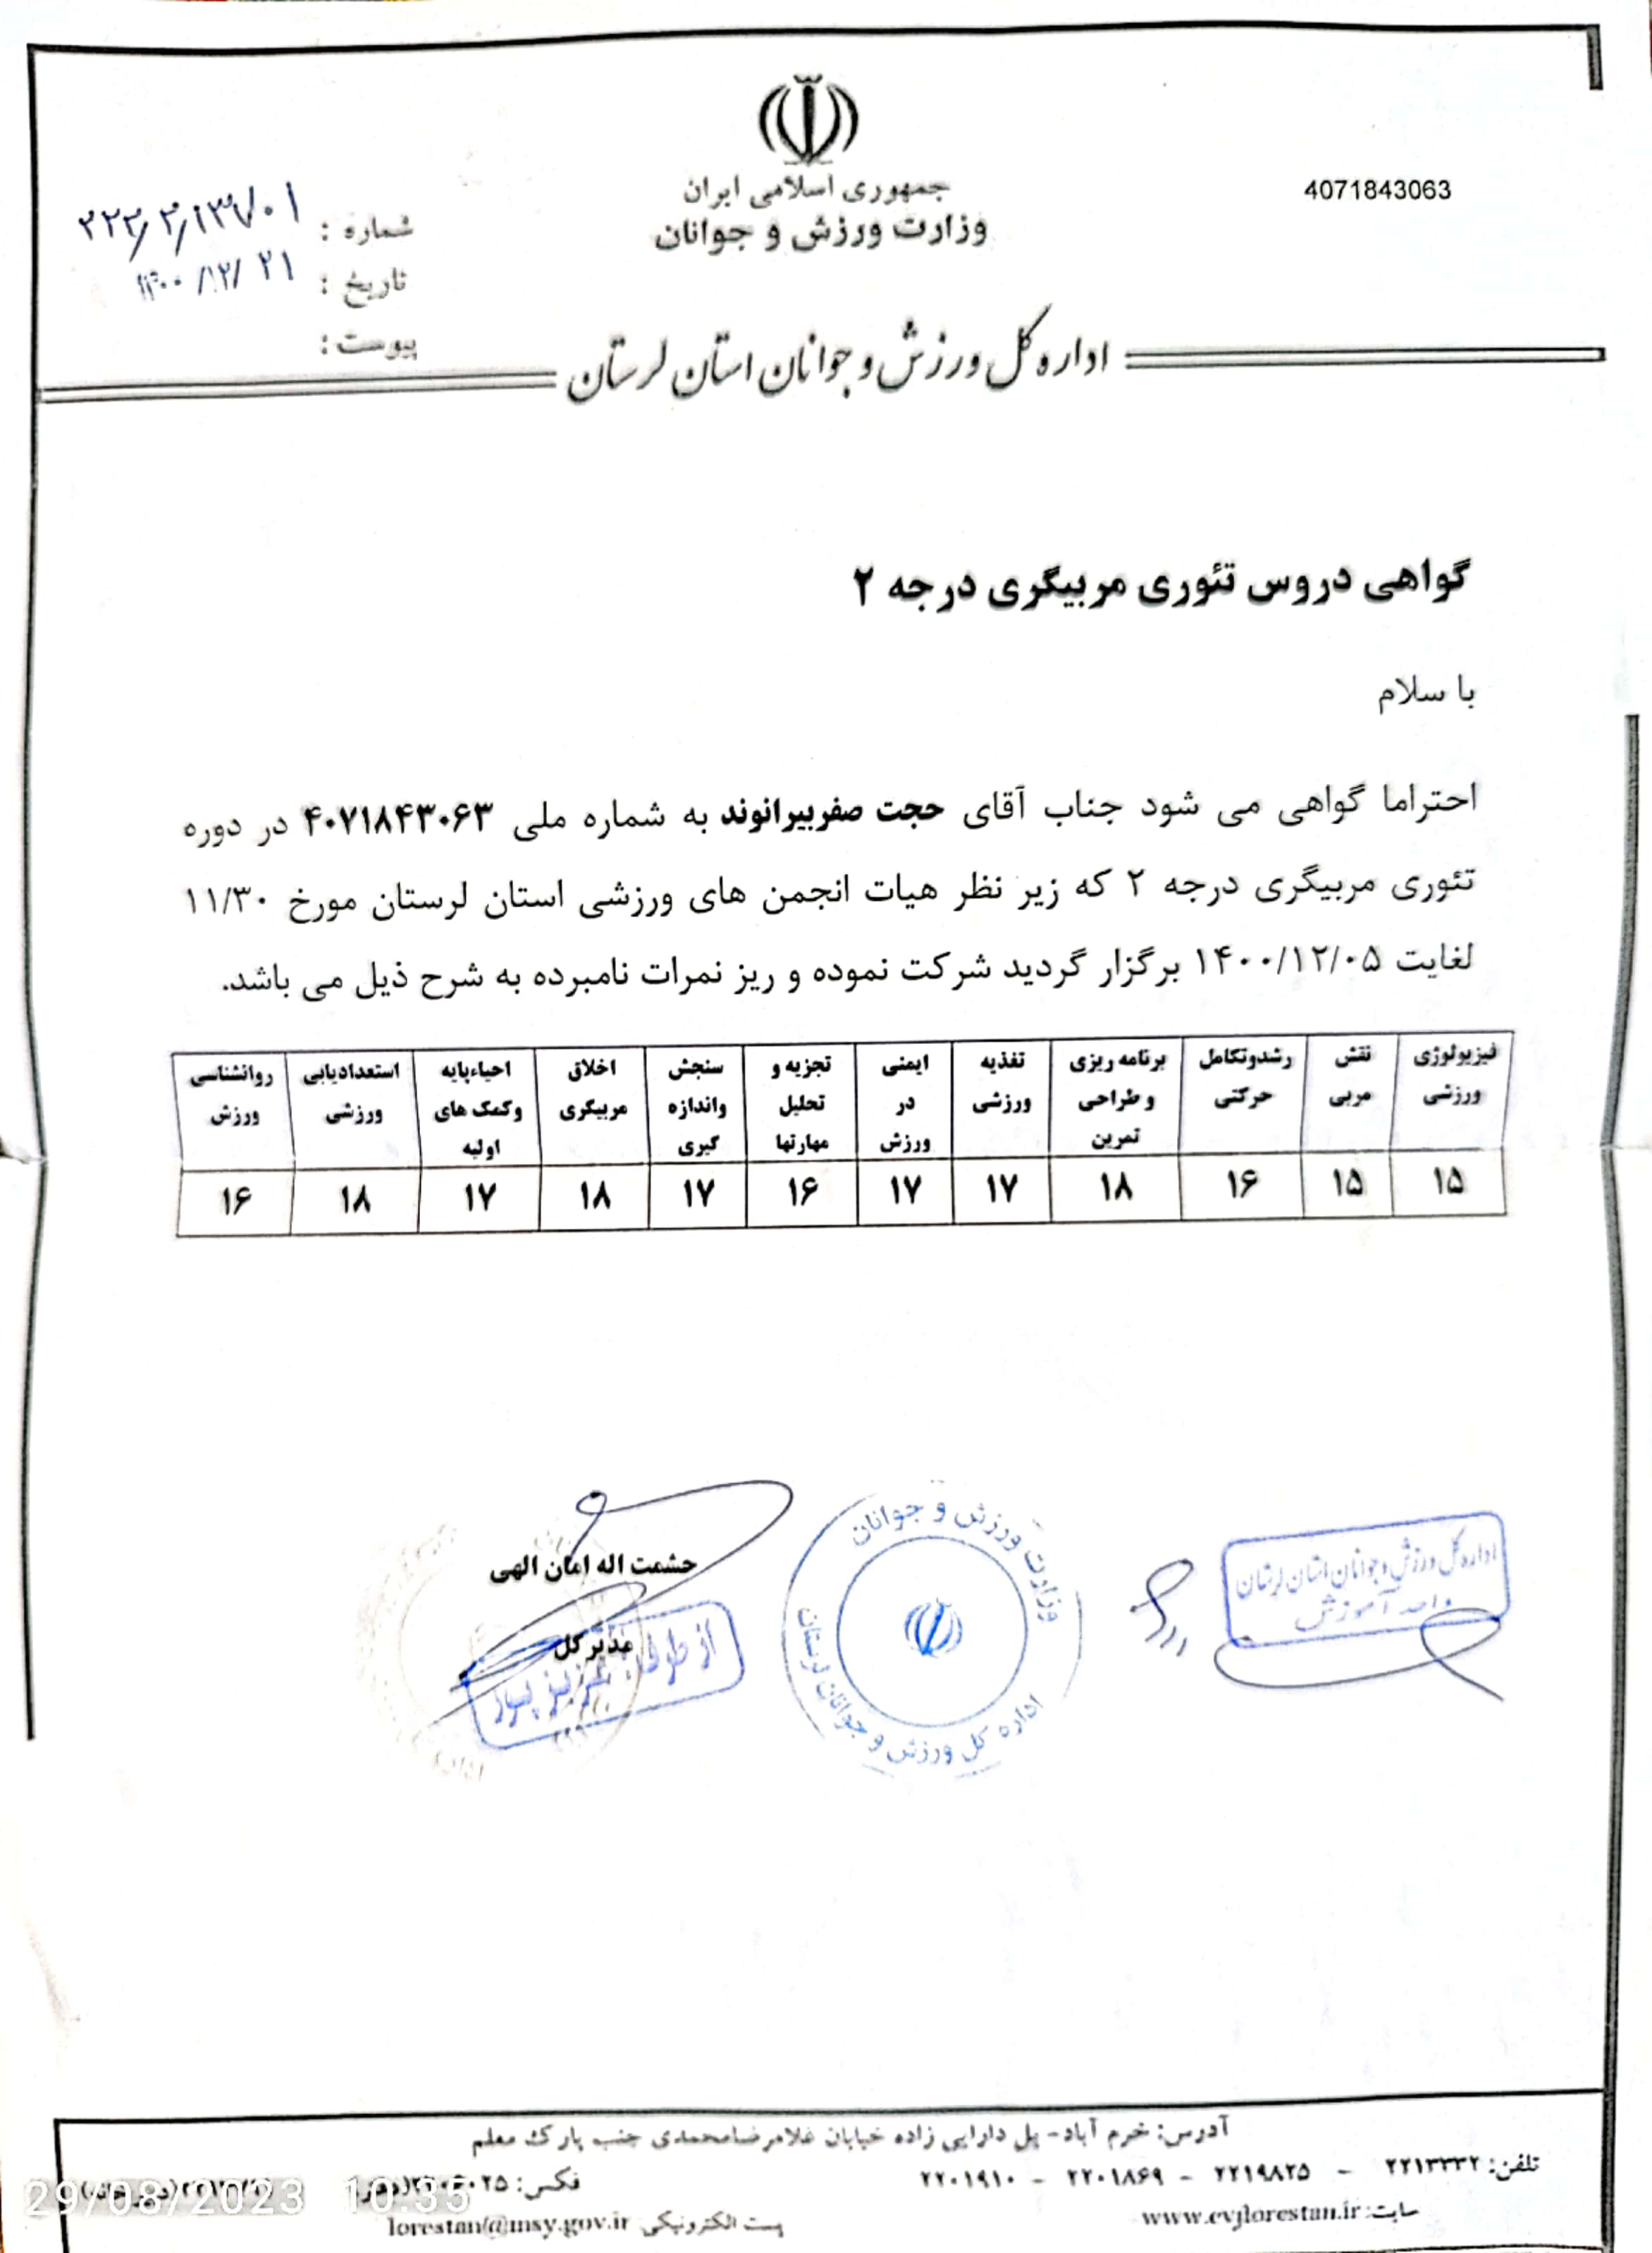 4071843063
جمهوری اسلامی ایران
وزارت ورزش و جوانان
شماره :
تاریخ : ۱۴۰۰/۱۲/۲۱
پیوست :
اداره کل ورزش و جوانان استان لرستان
گواهی دروس تئوری مربیگری درجه ۲
با سلام
احتراما گواهی می شود جناب آقای حجت صفربیرانوند به شماره ملی ۴۰۷۱۸۴۳۰۶۳ در دوره
تئوری مربیگری درجه ۲ که زیر نظر هیات انجمن های ورزشی استان لرستان مورخ ۱۱/۳۰
لغایت ۱۴۰۰/۱۲/۰۵ برگزار گردید شرکت نموده و ریز نمرات نامبرده به شرح ذیل می باشد.
فیزیولوژی ورزشی | نقش مربی | رشدوتکامل حرکتی | برنامه ریزی و طراحی تمرین | تغذیه ورزشی | ایمنی در ورزش | تجزیه و تحلیل مهارتها | سنجش واندازه گیری | اخلاق مربیگری | احیاءپایه وکمک های اولیه | استعدادیابی ورزشی | روانشناسی ورزش
۱۵ | ۱۵ | ۱۶ | ۱۸ | ۱۷ | ۱۷ | ۱۶ | ۱۷ | ۱۸ | ۱۷ | ۱۸ | ۱۶
اداره کل ورزش و جوانان استان لرستان
واحد آموزش
وزارت ورزش و جوانان
اداره کل ورزش و جوانان لرستان
حشمت اله امان الهی
مدیر کل
از طرف عزیز پور
آدرس: خرم آباد- پل دارایی زاده خیابان غلامرضامحمدی جنب پارک معلم
تلفن: ۲۲۱۳۳۳۲ - ۲۲۱۹۸۲۵ - ۲۲۰۱۸۶۹ - ۲۲۰۱۹۱۰ فکس:
سایت: www.evjlorestan.ir پست الکترونیکی lorestan@msy.gov.ir
29/08/2023 10:35